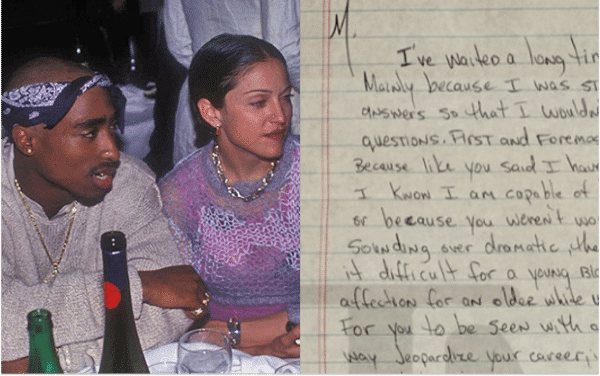 M,
I've waited a long tim
Mainly because I was st
answers so that I wouldn
questions. First and Foremos
Because like you said I have
I know I am capable of
or because you weren't wo
Sounding over dramatic, the
it difficult for a young Bla
affection for an older white w
For you to be seen with a
way Jeopardize your career, i